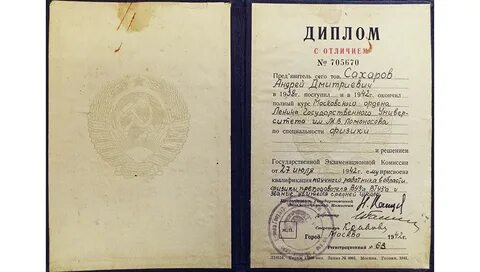 ДИПЛОМ
С ОТЛИЧИЕМ
№ 705670
Пред'явитель сего тов. Сахаров
Андрей Дмитриевич
в 1938 г. поступил и в 1942 г. окончил
полный курс Московского ордена
Ленина Государственного Универ-
ситета им. М.В. Ломоносова
по специальности физики
и решением
Государственной Экзаменационной Комиссии
от 27 июля 1942 г. ему присвоена
квалификация научного работника в области
физики преподавателя ВУЗа ВТУЗа и
звание учителя средней школы
Председатель Государственной
Экзаменационной Комиссии
М.П.
Секретарь
Город Москва 1942 г.
Регистрационный № 63